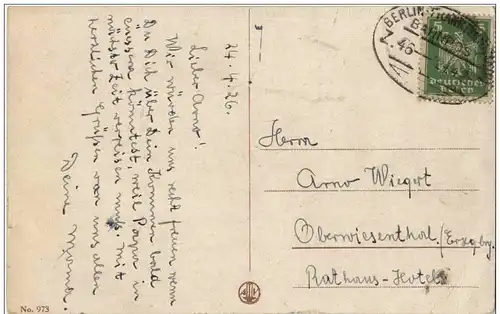 24. 4. 26.
Lieber Arno!
Wir würden uns recht freuen wenn
Du Dich über Dein Kommen bald
äussern könntest, weil Papa in
nächster Zeit verreisen muss. Mit
herzlichen Grüßen von uns allen
Deine Mama.
No. 973
BERLIN-
BAHNPOST
46
5
Deutsches
Reich
Herrn
Arno Wiegert
Oberwiesenthal./Erzgbg.
Rathaus-Hotel